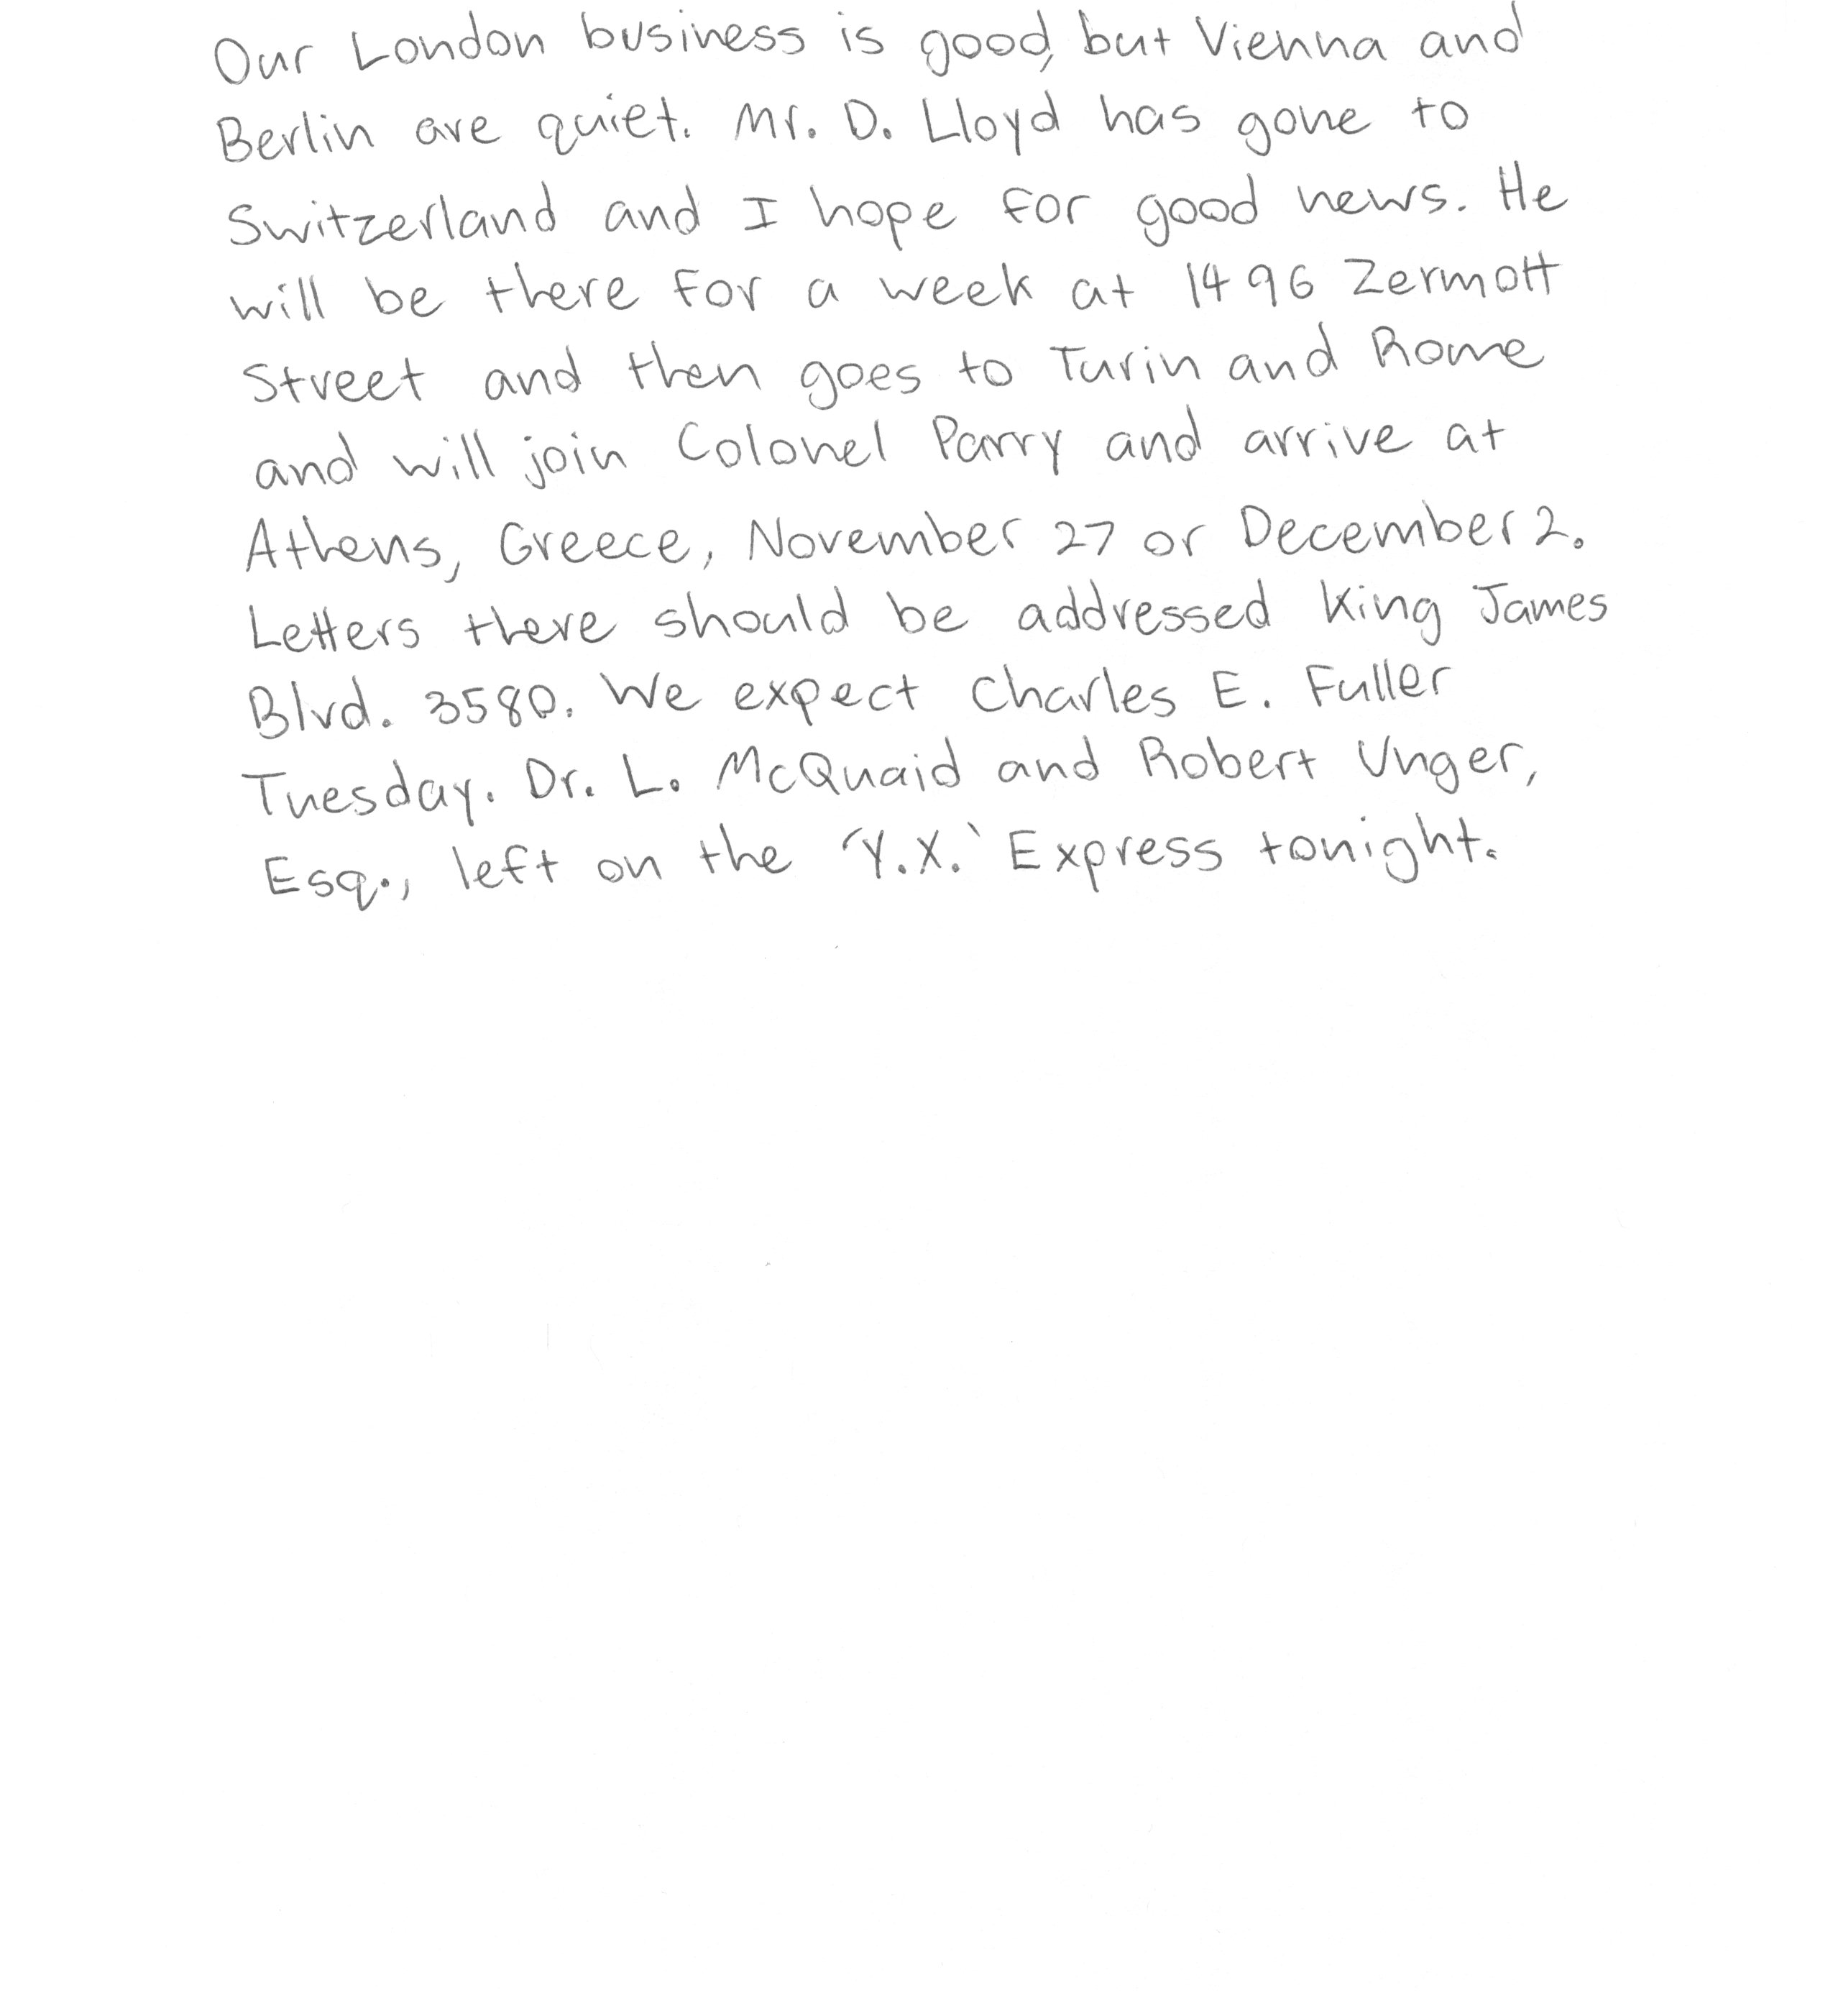 Our London business is good, but Vienna and
Berlin are quiet. Mr. D. Lloyd has gone to
Switzerland and I hope for good news. He
will be there for a week at 1496 Zermott
Street and then goes to Turin and Rome
and will join Colonel Parry and arrive at
Athens, Greece, November 27 or December 2.
Letters there should be addressed King James
Blvd. 3580. We expect Charles E. Fuller
Tuesday. Dr. L. McQuaid and Robert Unger,
Esq., left on the 'Y.X.' Express tonight.